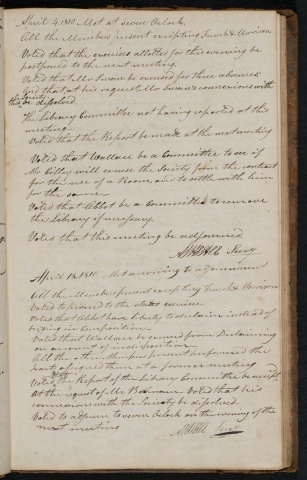 April 4. 1810 Met at seven Oclock.
All the Members present excepting French & Morison
Voted that the exercises allotted for this evening be
postponed to the next meeting.
Voted that Mr Swan be excused for three absences
and that at his request Mr Swan's connexions with
this Society be dissolved.
The Library Committee not having reported at this
meeting.
Voted that the Report be made at the next meeting
Voted that Wallace be a Committee to see if
Mr Cilley will excuse the Society from the contract
for the use of a Room, and to settle with him
for the same.
Voted that Abbot be a Committee to remove
the Library if necessary.
Voted that this meeting be adjourned
Secry
April 18. 1810. Met according to adjournment
All the Members present excepting French & Morison
Voted to proceed to the exercises
Voted that Abbot have liberty to declaim instead of
in Composition.
Voted that Wallace be excused from Declaiming
on account of indisposition.
All the other Members present performed the
parts assigned them at a former meeting
Voted, that the Report of the Library Committee be accepted
At the request of Mr Voted that his
connexions with the Society be dissolved.
Voted to adjourn to seven Oclock on the evening of the
next meeting
Secry